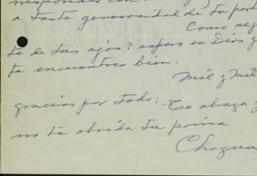 responder con
a tanta generosidad de tu part
Como seg
te de tus ojos? espero en Dios y
te encuentres bien.
Mil y mil
gracias por todo. Te abraza y
no te olvida tu prima
Chagua